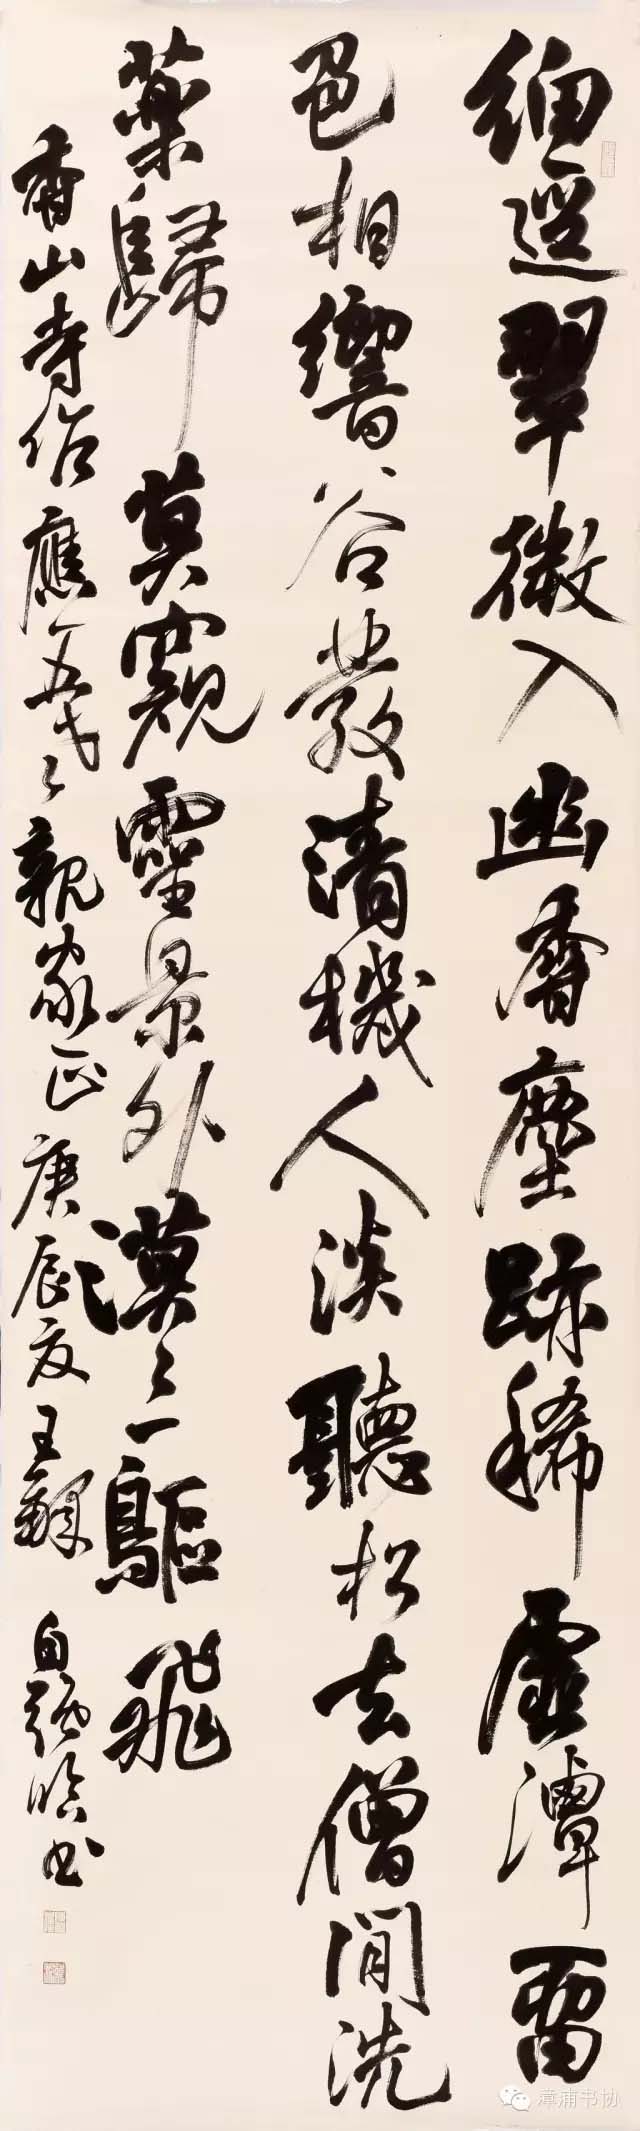 細逕翠微入幽香塵跡稀虛潭留
色相響谷發清機人淡聽松去僧閒洗
藥歸莫窺靈景外漠漠一軀飛
香山寺作應五弋弋親家正庚辰夏王鐸
自強臨書
漳浦书协